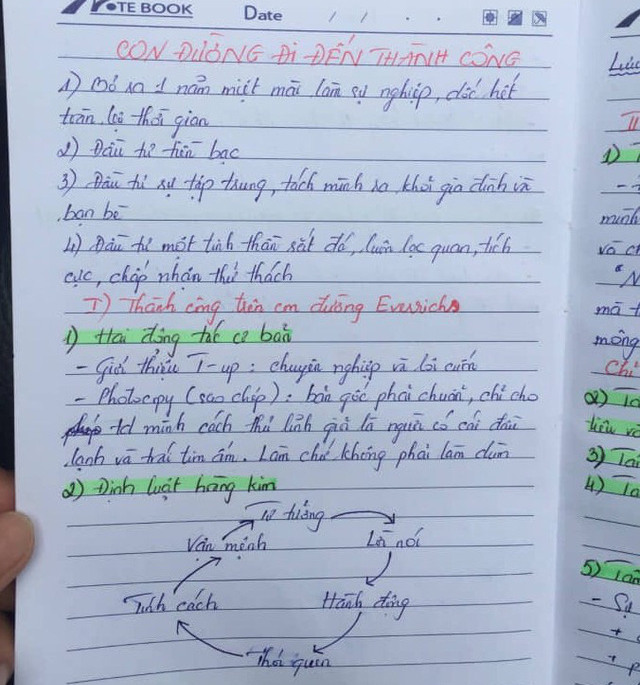 NOTE BOOK Date / / . .
CON ĐƯỜNG ĐI ĐẾN THÀNH CÔNG
1) Bỏ ra 1 năm miệt mài làm sự nghiệp, dốc hết
toàn bộ thời gian
2) Đầu tư tiền bạc
3) Đầu tư sự tập trung, tách mình ra khỏi gia đình và
bạn bè
4) Đầu tư một tinh thần sắt đá, luôn lạc quan, tích
cực, chấp nhận thử thách
I) Thành công trên con đường Everichs
1) Hai động tác cơ bản
- Giới thiệu T-up: chuyên nghiệp và lôi cuốn
- Photocopy (sao chép): bản gốc phải chuẩn, chỉ cho
mình cách thủ lĩnh già là người có cái đầu
lạnh và trái tim ấm. Làm chứ không phải làm
2) Định luật hàng kim
Tư tưởng
Vận mệnh Lời nói
Tính cách Hành động
Thói quen
Lưu
II
1)
minh
và ch
"N
mà t
mông
Chỉ
2) Tà
tiêu và
3) Tài
4) Ta
5) Tầm
- Sự
+
+ p